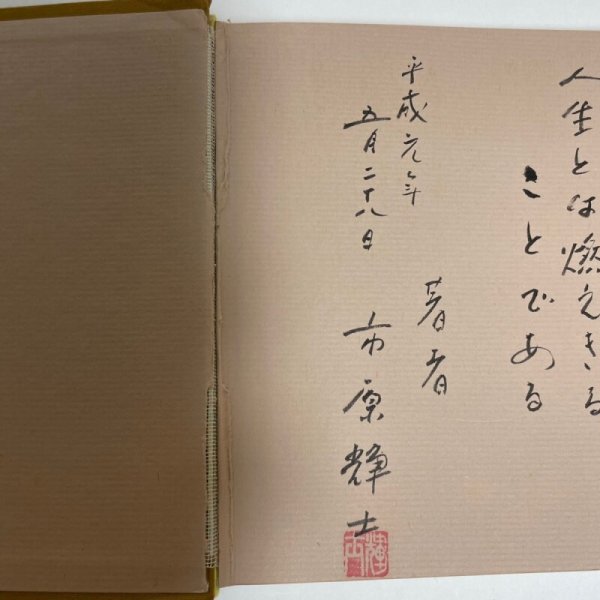 人生とは燃えきる
ことである
平成元年
五月二十八日
著者
市原輝士
輝士